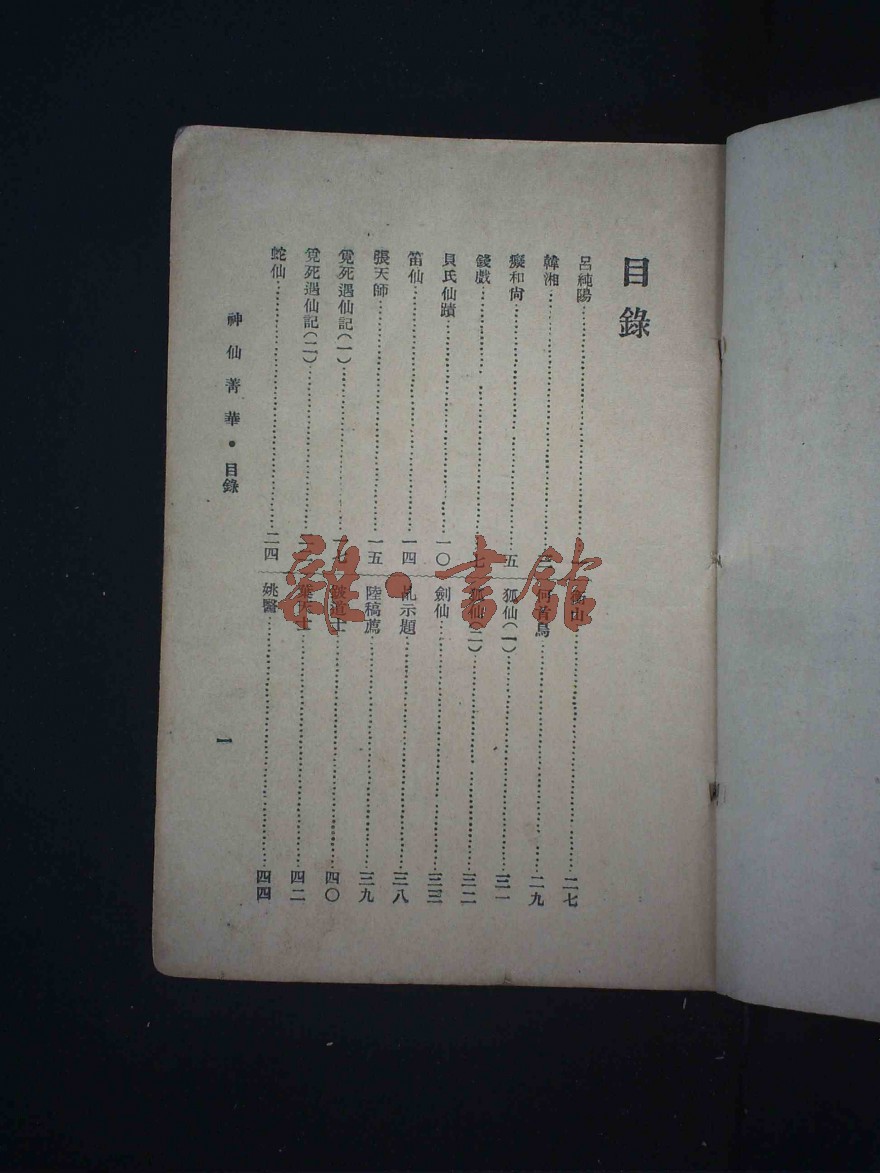 目錄
呂純陽
韓湘
癡和尙 五
錢戲 七
貝氏仙蹟 一〇
笛仙 一四
張天師 一五
覓死遇仙記(一) 一七
覓死遇仙記(二)
蛇仙 二四
衡山 二七
何首烏 二九
狐仙(一) 三一
狐仙(二) 三二
劍仙 三三
乩示題 三八
陸稿薦 三九
跛道士 四〇
葉天士 四二
姚醫 四四
神仙菁華・目錄
一
雜・書館